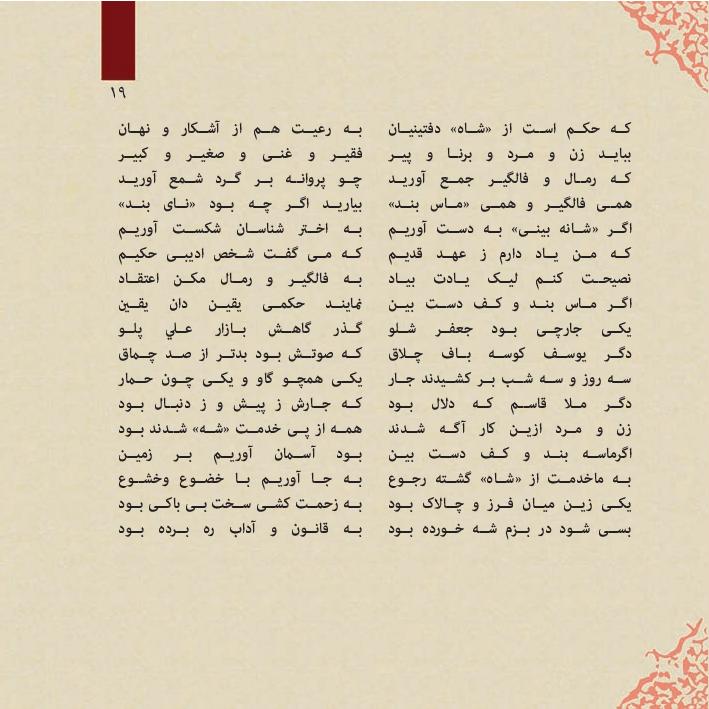 ١٩
که حکم است از «شاه» دفتینیان به رعیت هم از آشکار و نهان
بباید زن و مرد و برنا و پیر فقیر و غنی و صغیر و کبیر
که رمال و فالگیر جمع آورید چو پروانه بر گرد شمع آورید
همی فالگیر و همی «ماس بند» بیارید اگر چه بود «نای بند»
اگر «شانه بینی» به دست آوریم به اختر شناسان شکست آوریم
که من یاد دارم ز عهد قدیم که می گفت شخص ادیبی حکیم
نصیحت کنم لیک یادت بیاد به فالگیر و رمال مکن اعتقاد
اگر ماس بند و کف دست بین نمایند حکمی یقین دان یقین
یکی جارچی بود جعفر شلو گذر گاهش بازار علي پلو
دگر یوسف کوسه باف چلاق که صوتش بود بدتر از صد چماق
سه روز و سه شب بر کشیدند جار یکی همچو گاو و یکی چون حمار
دگر ملا قاسم که دلال بود که جارش ز پیش و ز دنبال بود
زن و مرد ازین کار آگه شدند همه از پی خدمت «شه» شدند بود
اگرماسه بند و کف دست بین بود آسمان آوریم بر زمین
به ماخدمت از «شاه» گشته رجوع به جا آوریم با خضوع وخشوع
یکی زین میان فرز و چالاک بود به زحمت کشی سخت بی باکی بود
بسی شود در بزم شه خورده بود به قانون و آداب ره برده بود